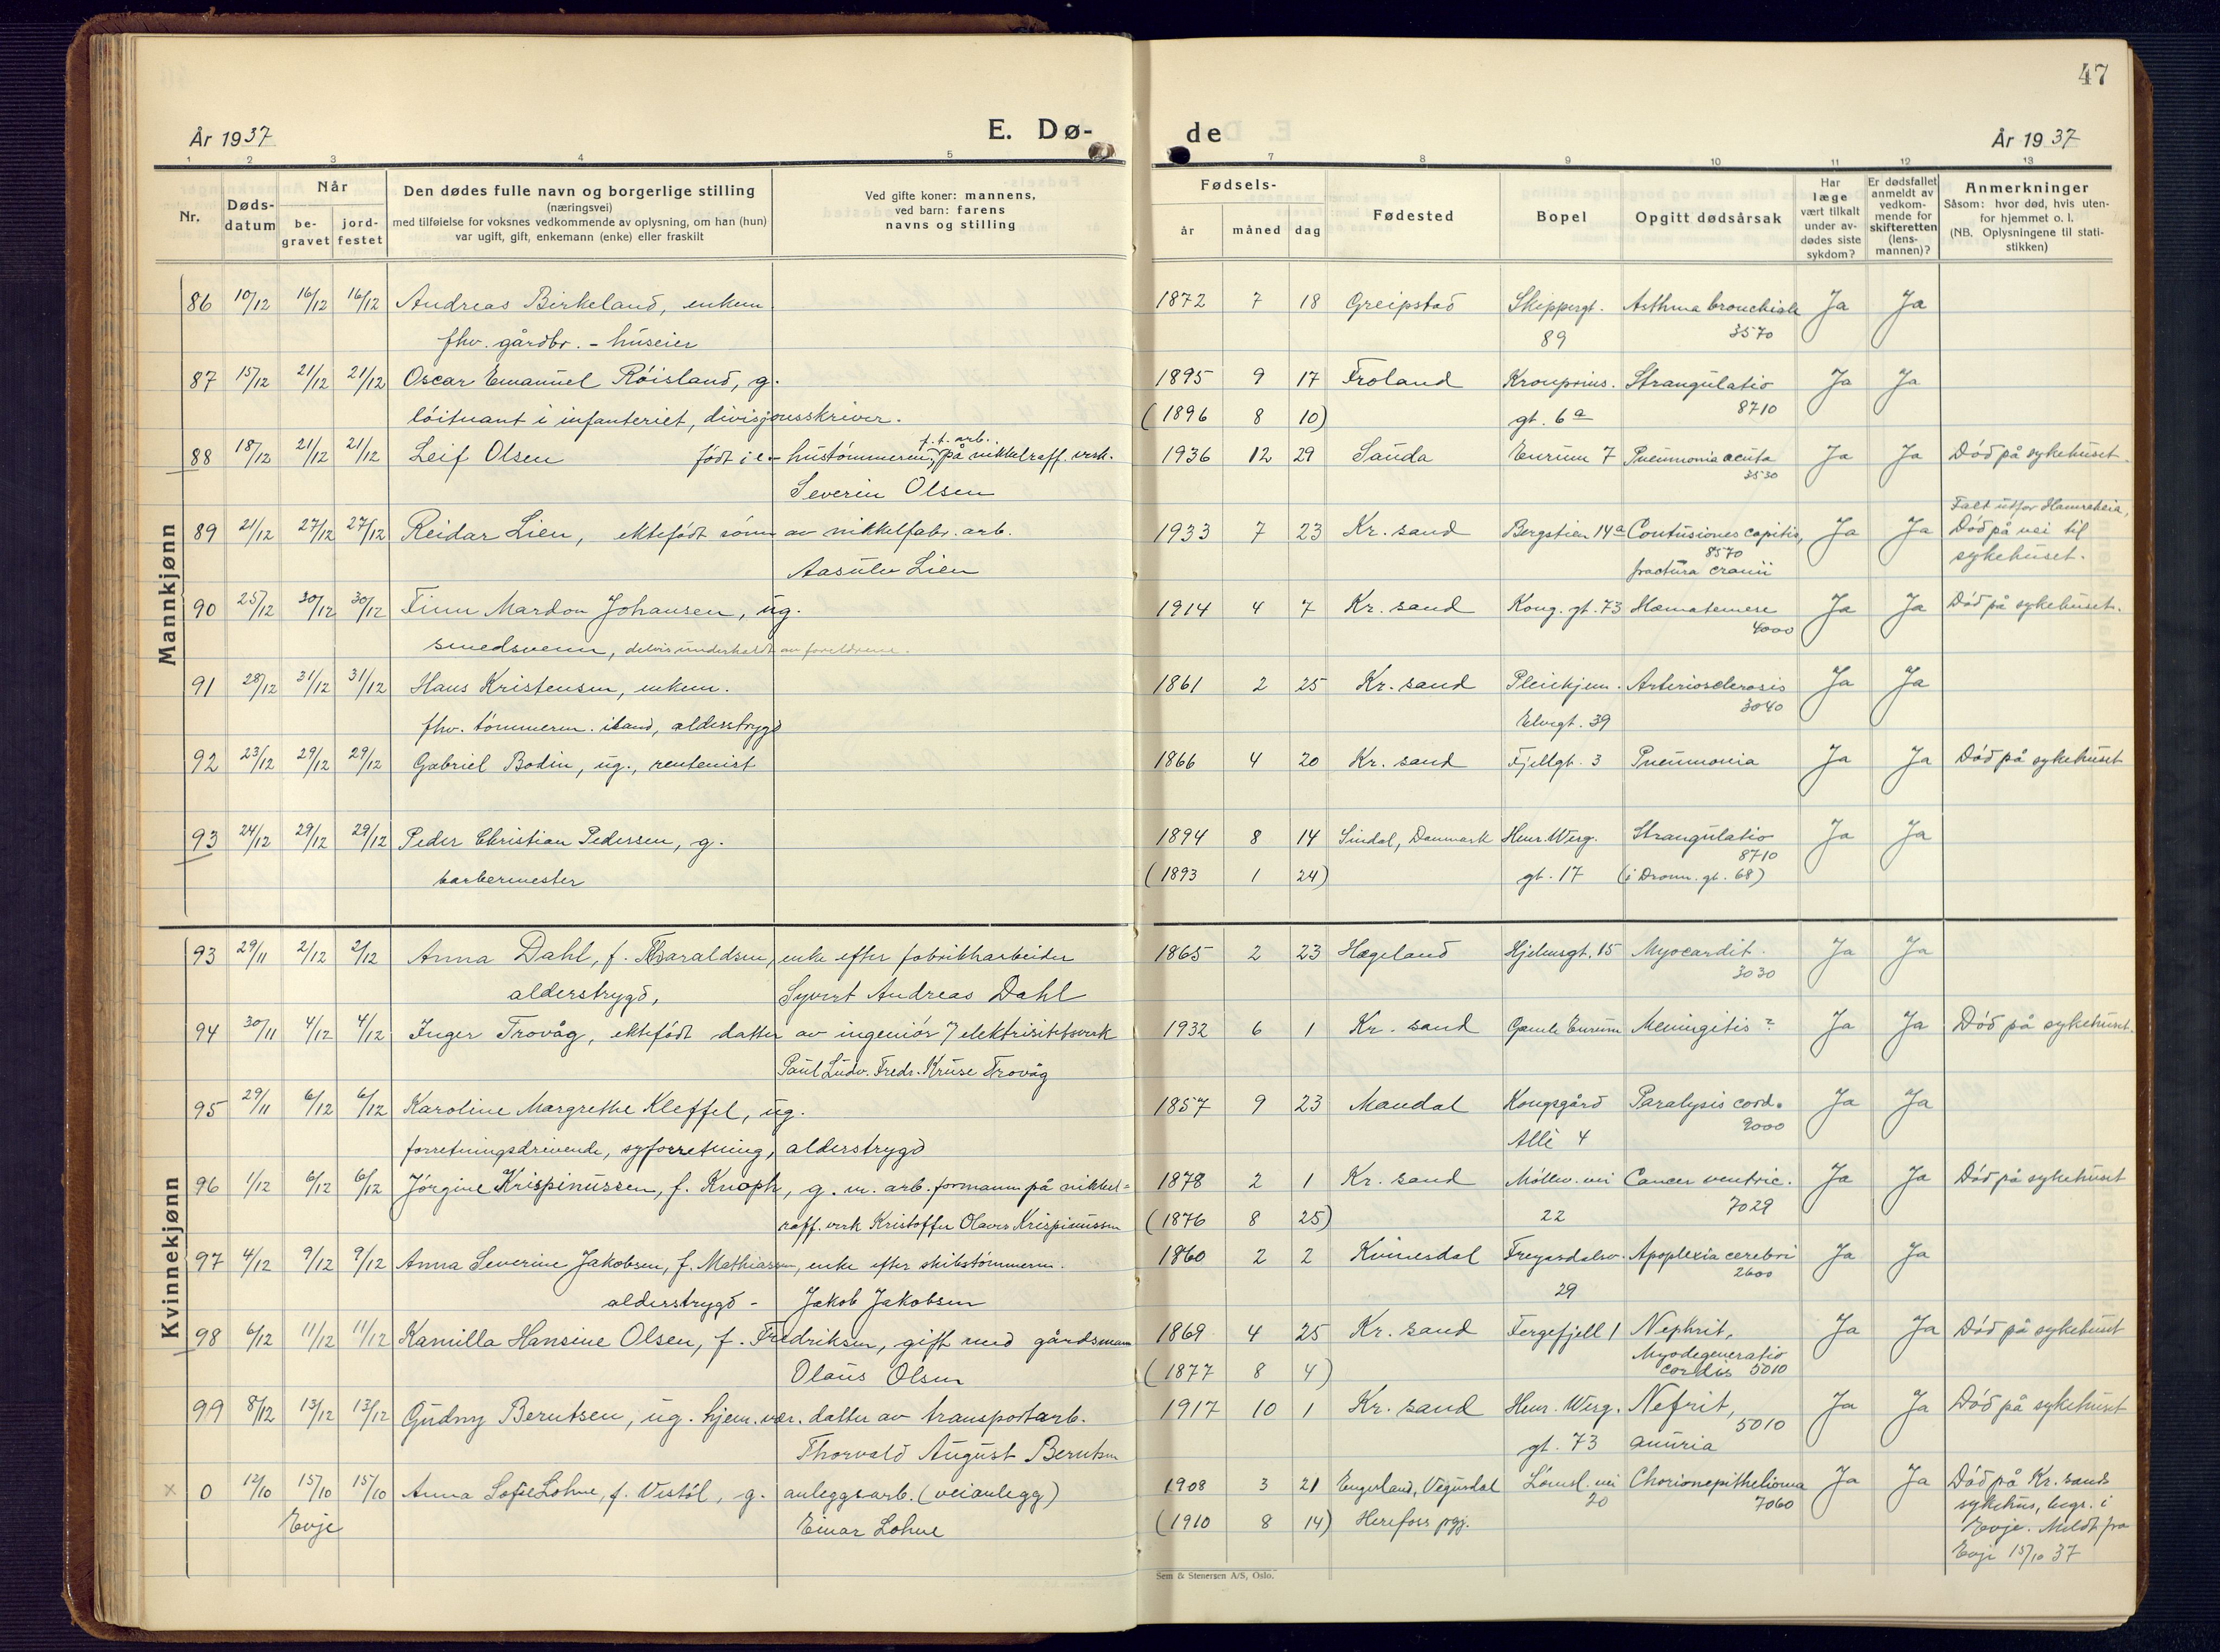 47
År 1937
E. Dø-
de
År 1937
1 2 3 4 5 7 8 9 10 11 12 13
Nr.
Døds-
datum
Når
be-
gravet
jord-
festet
Den dødes fulle navn og borgerlige stilling
(næringsvei)
med tilføielse for voksnes vedkommende av oplysning, om han (hun)
var ugift, gift, enkemann (enke) eller fraskilt
Ved gifte koner: mannens,
ved barn: farens
navns og stilling
Fødsels-
år måned dag
Fødested
Bopel
Opgitt dødsårsak
Har
læge
vært tilkalt
under av-
dødes siste
sykdom?
Er dødsfallet
anmeldt av
vedkom-
mende for
skifteretten
(lens-
mannen)?
Anmerkninger
Såsom: hvor død, hvis uten-
for hjemmet o. l.
(NB. Oplysningene til stati-
stikken)
Mannkjønn
86 10/12 16/12 16/12 Andreas Birkeland, enkem. 1872 7 18 Greipstad Skippergt. Asthma bronchiale Ja Ja
fhv. gårdbr. - huseier 89 3570
87 15/12 21/12 21/12 Oscar Emanuel Röisland, g. 1895 9 17 Froland Kronprins. Strangulatio Ja Ja
löitnant i infanteriet, divisjonsskriver. (1896 8 10) gt. 6a 8710
f.t. arb.
88 18/12 21/12 21/12 Leif Olsen født i e.- hustömmeren, på nikkelraff. verk. 1936 12 29 Sauda Eurum 7 Pneumonia acuta Ja Ja Död på sykehuset.
Severin Olsen 3530
Falt utfor Hamreheia,
89 21/12 27/12 27/12 Reidar Lien, ektefödt sönn av nikkelfabr. arb. 1933 7 23 Kr. sand Bergstien 14a Contusiones capitis, Ja Ja Död på vei til
8570 sykehuset.
Aasulv Lien fractura cranii
90 25/12 30/12 30/12 Finn Mardon Johansen, ug. 1914 4 7 Kr. sand Kong. gt. 73 Hæmatemese Ja Ja Död på sykehuset.
smedsvenn, delvis underholdt av foreldrene. 4000
91 28/12 31/12 31/12 Hans Kristensen, enkem. 1861 2 25 Kr. sand Pleiehjem. Arteriosclerosis Ja Ja
fhv. tömmerm. island, alderstrygd Elvegt. 39 3040
92 23/12 29/12 29/12 Gabriel Bodin, ug., rentenist 1866 4 20 Kr. sand Fjellgt. 3 Pneumonia Ja Ja Död på sykehuset
93 24/12 29/12 29/12 Peder Christian Pedersen, g. 1894 8 14 Sindal, Danmark Henr. Werg. Strangulatio Ja Ja
8710
barbermester (1893 1 24) gt. 17 (i Dronn. gt. 68)
Kvinnekjønn
93 29/11 2/12 2/12 Anna Dahl, f. Tharaldsen, enke efter fabrikkarbeider 1865 2 23 Hægeland Hjelmsgt. 15 Myocardit. Ja Ja
alderstrygd, Syvert Andreas Dahl 3030
94 30/11 4/12 4/12 Inger Trovåg, ektefödt datter av ingeniör 7 elektrisitetsverk 1932 6 1 Kr. sand Gamle Eurum Meningitis ? Ja Ja Död på sykehuset.
Paul Ludv. Fredr. Kruse Trovåg
95 29/11 6/12 6/12 Karoline Margrethe Kleffel, ug. 1857 9 23 Mandal Kongsgård Paralysis cord. Ja Ja
forretningsdrivende, syforretning, alderstrygd Allé 4 9000
96 1/12 6/12 6/12 Jörgine Krispinussen, f. Knoph, g. m. arb. formann på nikkel- 1878 2 1 Kr. sand Möllev. vei Cancer ventric. Ja Ja Död på sykehuset
raff. verk Kristoffer Olaves Krispinussen (1876 8 25) 22 7029
97 4/12 9/12 9/12 Anna Severine Jakobsen, f. Mathiassen, enke efter skibstömmerm. 1860 2 2 Kvinesdal Freyasdalsv. Apoplexia cerebri Ja Ja
alderstrygd - Jakob Jakobsen 29 2600
98 6/12 11/12 11/12 Kamilla Hansine Olsen, f. Fredriksen, gift med gårdsmann 1869 4 25 Kr. sand Fergefjell 1 Nephrit, Ja Ja Död på sykehuset
Myodegeneratio
Olaus Olsen (1877 8 4) cordis 5010
99 8/12 13/12 13/12 Gudny Berntsen, ug. hjem. vær. datter av transportarb. 1917 10 1 Kr. sand Henr. Werg. Nefrit, Ja Ja Död på sykehuset
5010
Thorvald August Berntsen gt. 73 anuria
x 0 12/10 15/10 15/10 Anna Sofie Lohne, f. Vistöl, g. anleggsarb. (veianlegg) 1908 3 21 Engesland, Vegusdal Lömsl. vei Chorionepithelioma Ja Ja Död på Kr. sands
20 7060 sykehus, begr. i
Evje Einar Lohne (1910 8 14) Herefoss pgj. Evje. Meldt fra
Evje 15/10 37
Sem & Stenersen A/S, Oslo.